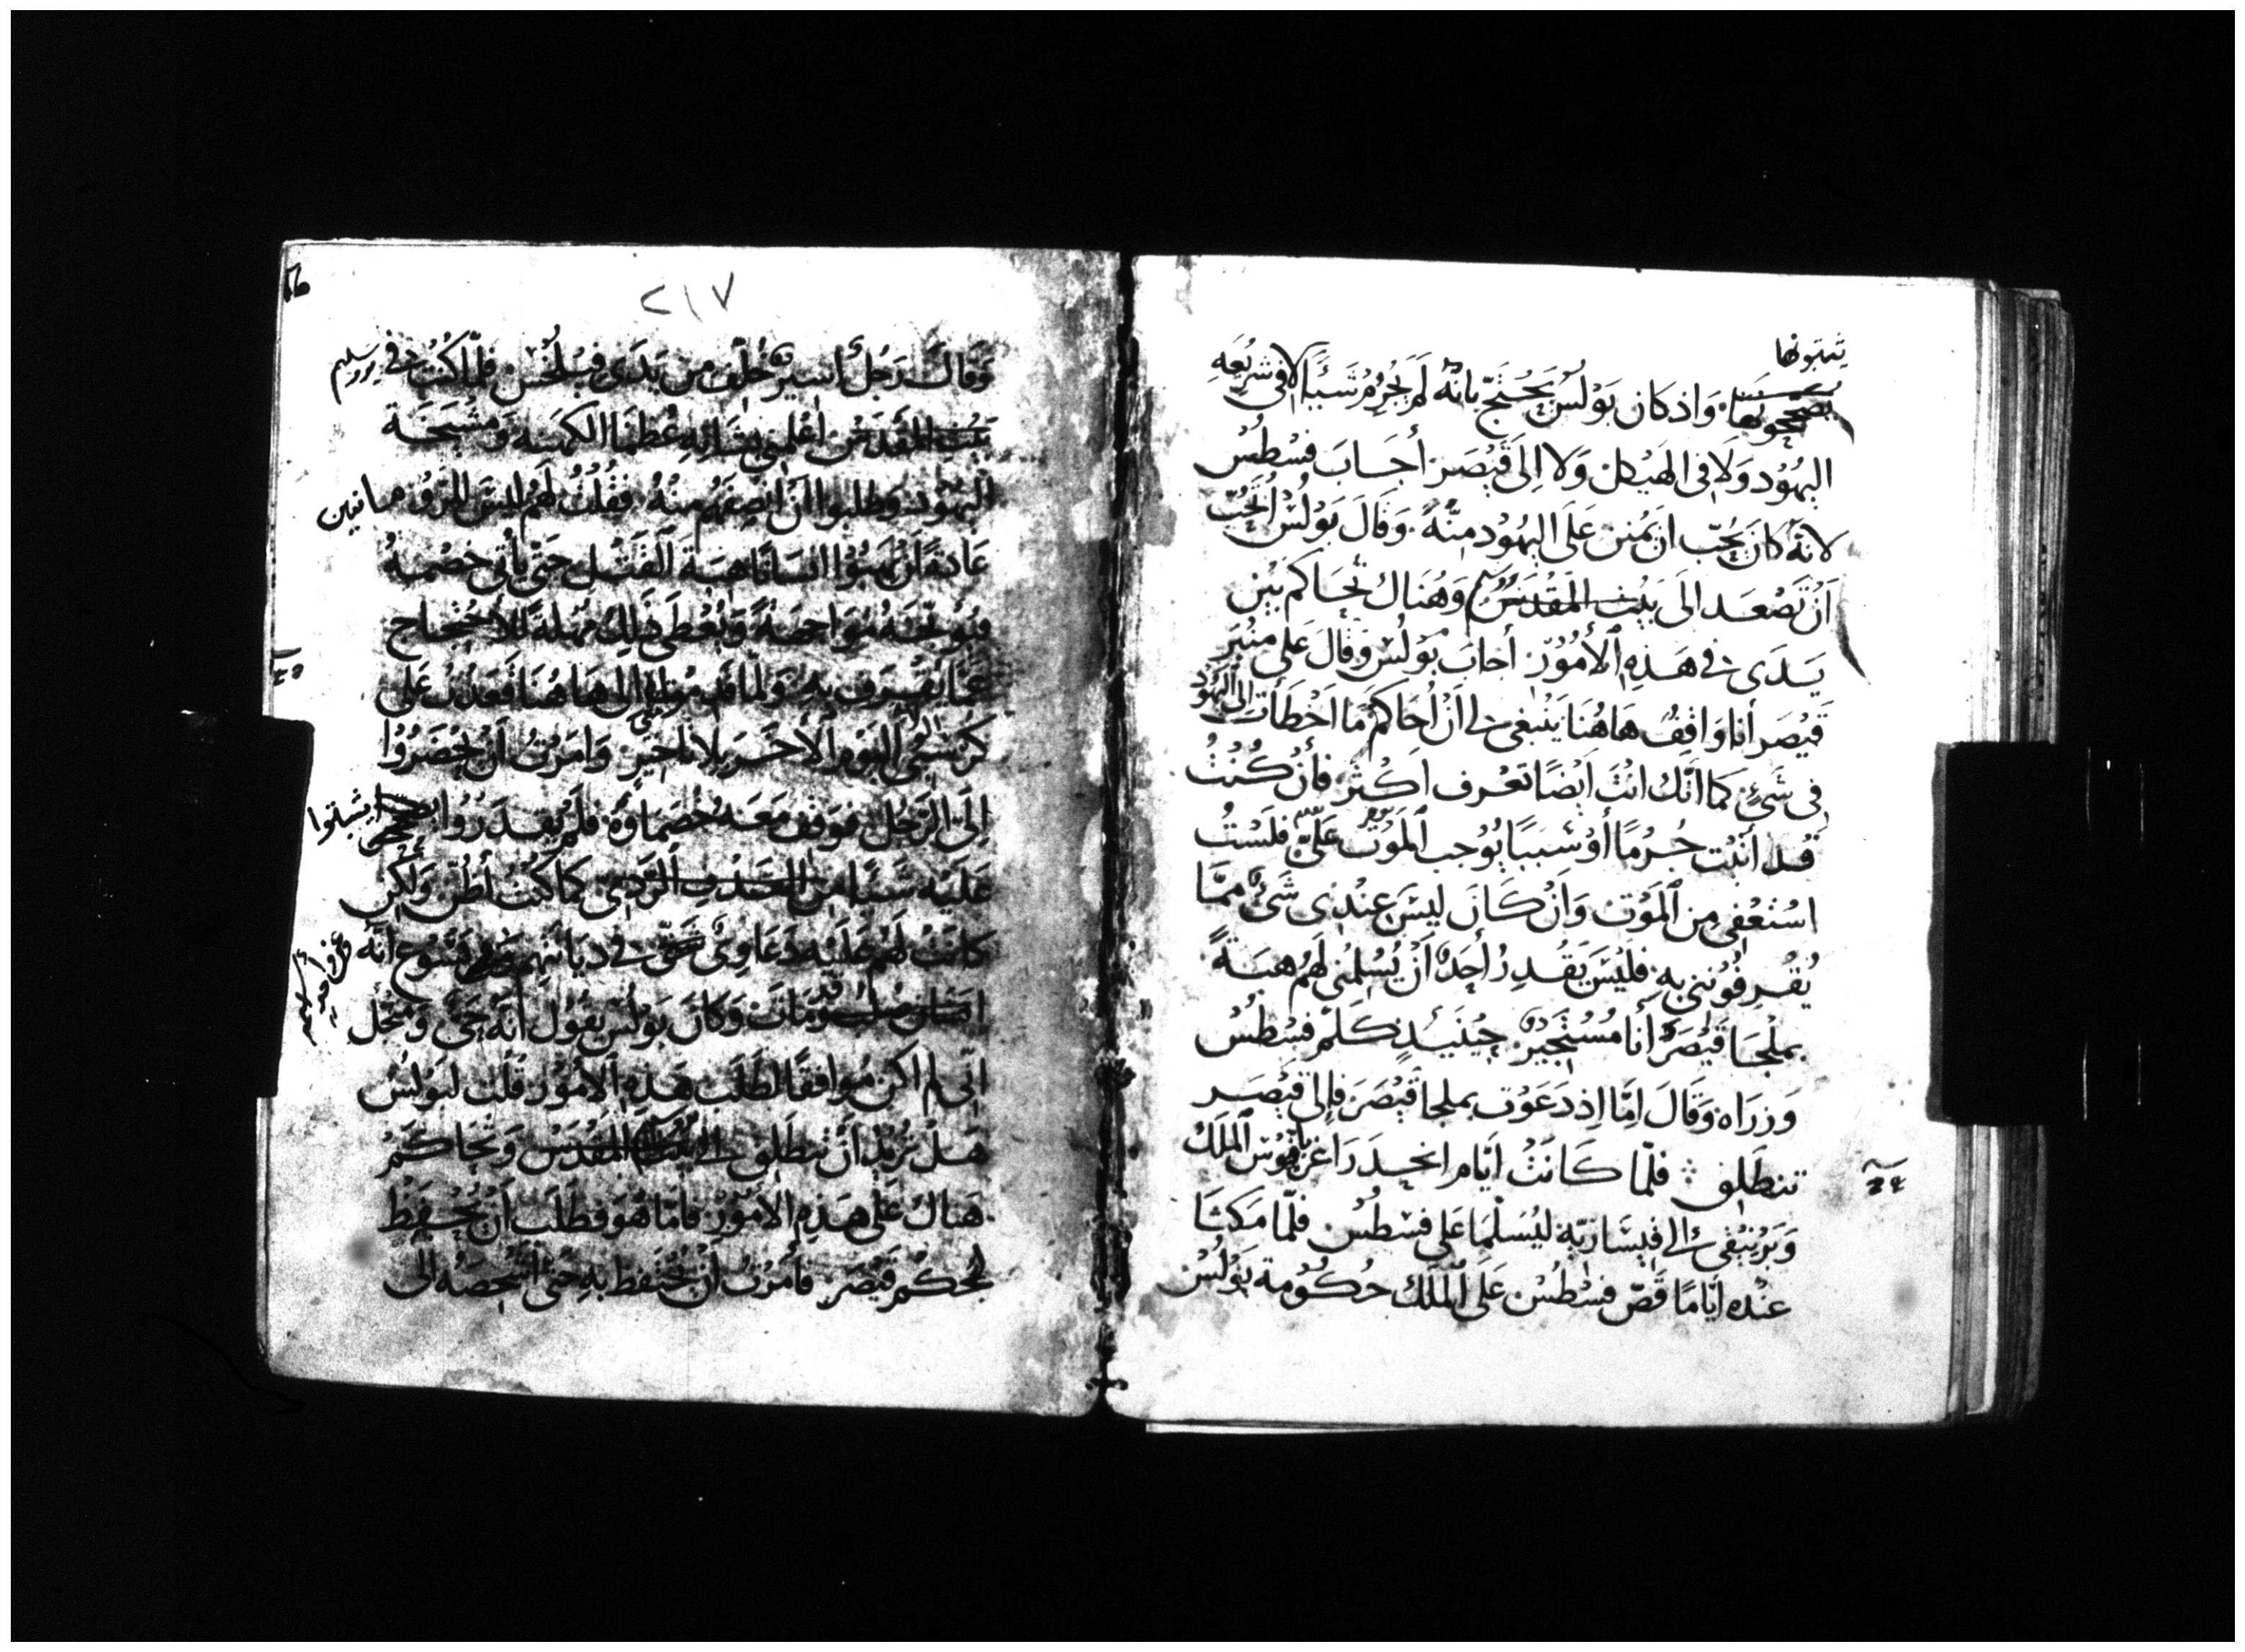 يثبتونها
يصححونها. واذ كان بولس يحتج بانه لم يجرم شيأ لا في شريعه
اليهود ولا في الهيكل ولا الى قيصر أجاب فسطس
لانه كان يحب ان يمنن على اليهود منه. وقال بولس اتحب
أن تصعد الى بيت المقدس وهناك تحاكم بين
يدى في هذه الأمور. أجاب بولس وقال على منبر
قيصر أنا واقف هاهنا ينبغي لي أن أحاكم ما اخطأت الى اليهود
في شئ كما انك انت ايضا تعرف اكثر فأن كنت
قد أتيت جرما أو سببا يوجب الموت على فلست
استعفي من الموت وان كان ليس عندى شئ مما
يقرفونني به فليس يقدر أحد أن يسلمني لهم هبة
بملجا قيصر أنا مستجير حينئذ كلم فسطس
وزراه وقال اما اذ دعوت بملجا قيصر فالى قيصر
تنطلق فلما كانت ايام انحدر اغريافوس الملك
وبرنيقى الى قيسارية ليسلما على فسطس فلما مكثا
عنده أياما قص فسطس على الملك حكومة بولس
٢١٧
وقال رجل أسير خلف من يدى فيلخس فلما كنت في يورسليم
بيت المقدس اعلموني بشانه عظما الكهنه ومشيخة
اليهود وطلبوا أن انصفهم منه فقلت لهم ليس للروم هانيين
عادة أن يهبوا انسانا هبة القتل حتى يأتي خصمه
فيوبخه مواجهة ويعطى ذلك مهلة للاحتجاج
عما يقرف به ولما قدموا الى هاهنا قعدت على
كرسي اليوم الأخر بلا تاخير وامرت أن يحضروا
الى الرجل فوقف معه خصماؤه فلم يقدروا يصححوا يثبتوا
عليه شيئا من الردى كما كنت أظن ولكن
كانت لهم عليه دعاوى في ديانتهم وفي يسوع انه
انسان مات وكان بولس يقول انه حى ومن أجل
انى لم اكن موافقا لطلب هذه الأمور قلت لبولس
هل تريد أن تنطلق الى بيت المقدس وتحاكم
هناك على هذه الأمور فأما هو فطلب أن يحتفظ
لحكم قيصر فأمرت أن يحتفظ به حتى أشخصه الى